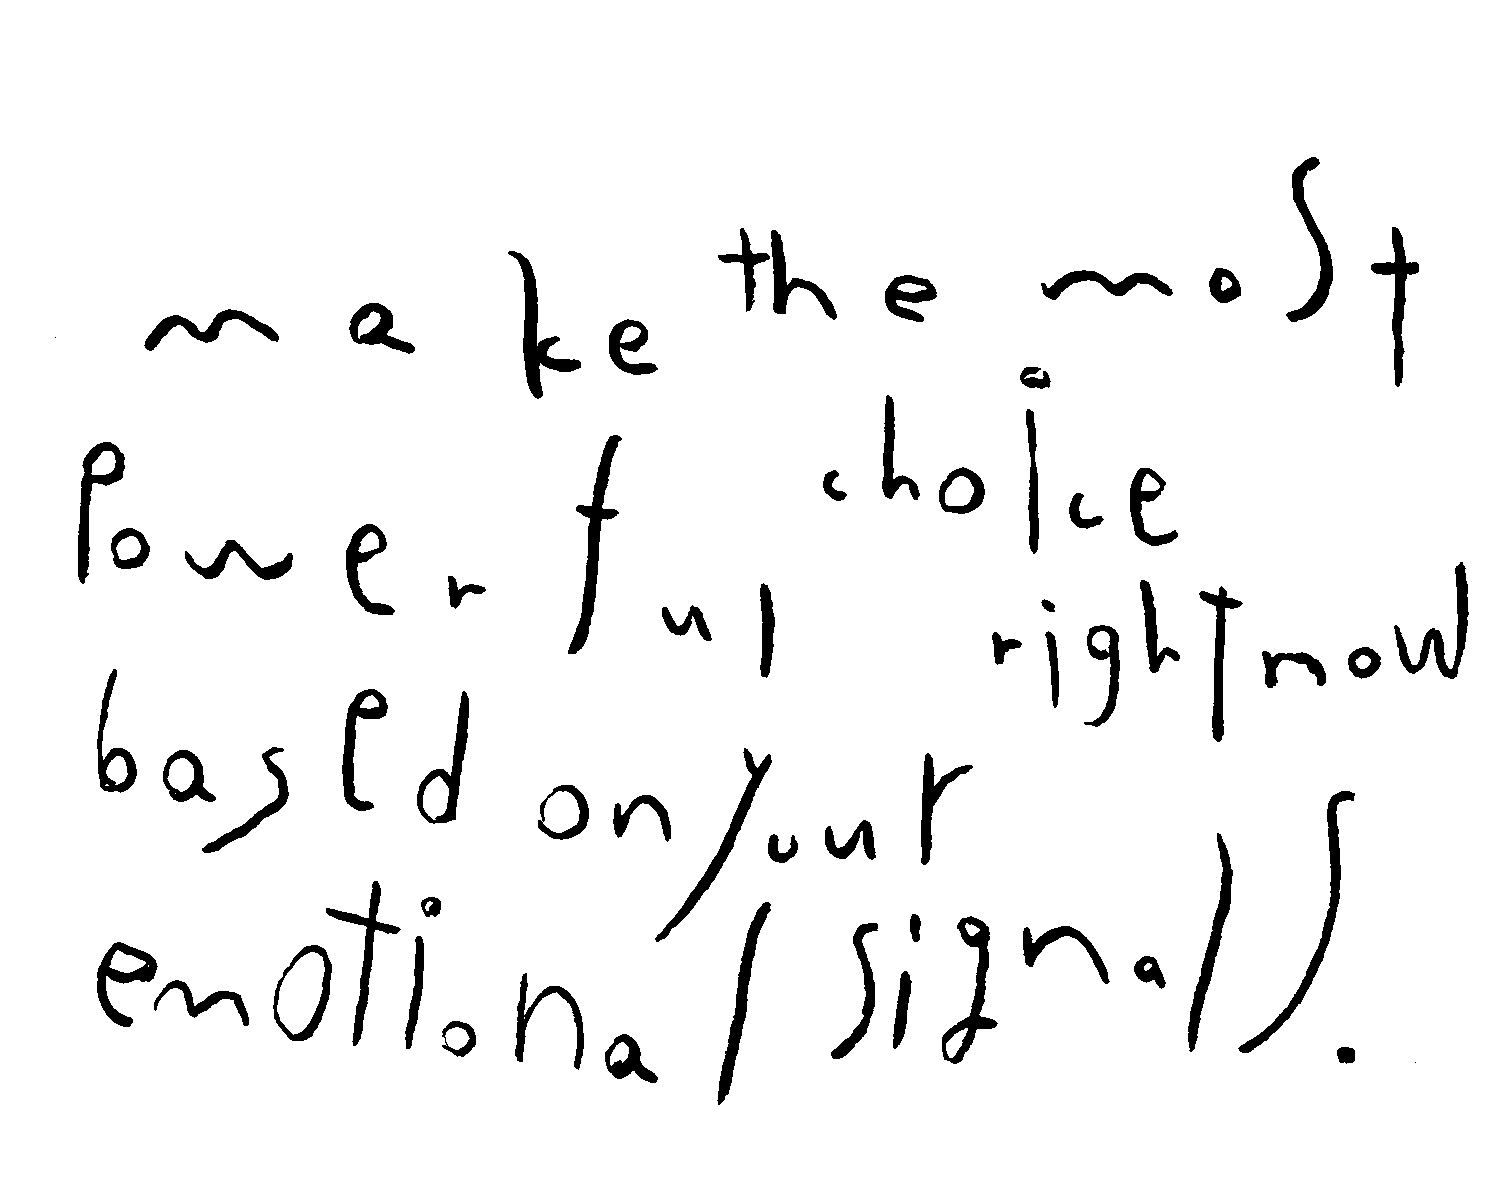 make the most
powerful choice
right now
based on your
emotional signals.